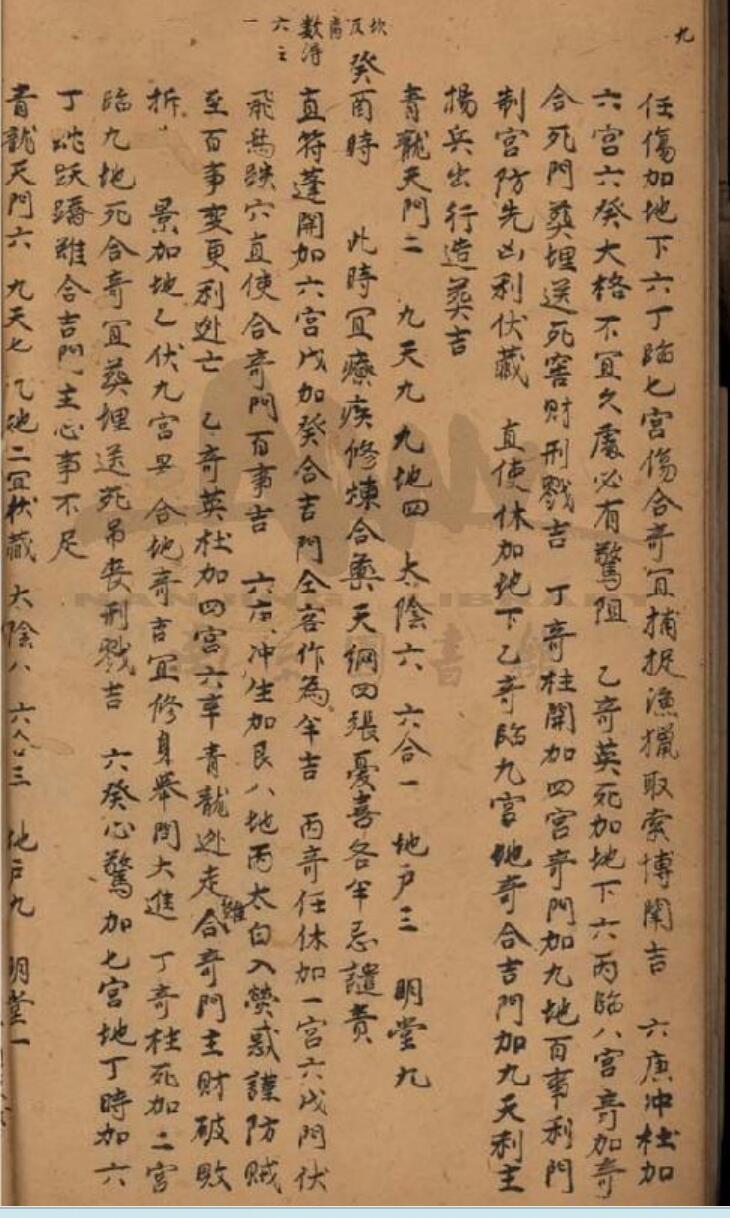 九
坎反㐫數得六主一
任傷加地下六丁臨七宮傷合奇宜捕捉漁獵取索博鬪吉　六庚冲杜加
六宮六癸大格不宜久處必有驚阻　乙奇英死加地下六丙臨八宮奇加奇
合死門葬埋送死害財刑戮吉　丁奇柱開加四宮奇門加九地百事利門
制宮防先凶利伏藏　直使休加地下乙奇臨九宮地奇合吉門加九天利主
揚兵出行造葬吉
青龍天門二　九天九　九地四　太陰六　六合一　地戶三　明堂九
癸酉時　此時宜療疾修煉合藥天網四張憂喜各半忌譴責
直符蓬開加六宮戊加癸合吉門全客作為半吉　丙奇任休加一宮六戊門伏
飛鳥跌穴直使合奇門百事吉　六庚冲生加艮八地丙太白入熒惑謹防賊
至百事变更利逃亡　乙奇英杜加四宮六辛青龍逃走雖合奇門主財破敗
拆　景加地乙伏九宮　合地奇吉宜修身舉問大進　丁奇柱死加二宮
臨九地死合奇宜葬埋送死吊丧刑戮吉　六癸心驚加七宮地丁時加六
丁蛇跃蹻雖合吉門主心事不足
青龍天門六　九天七　九地二宜伏藏　太陰八　六合三　地戶九　明堂一